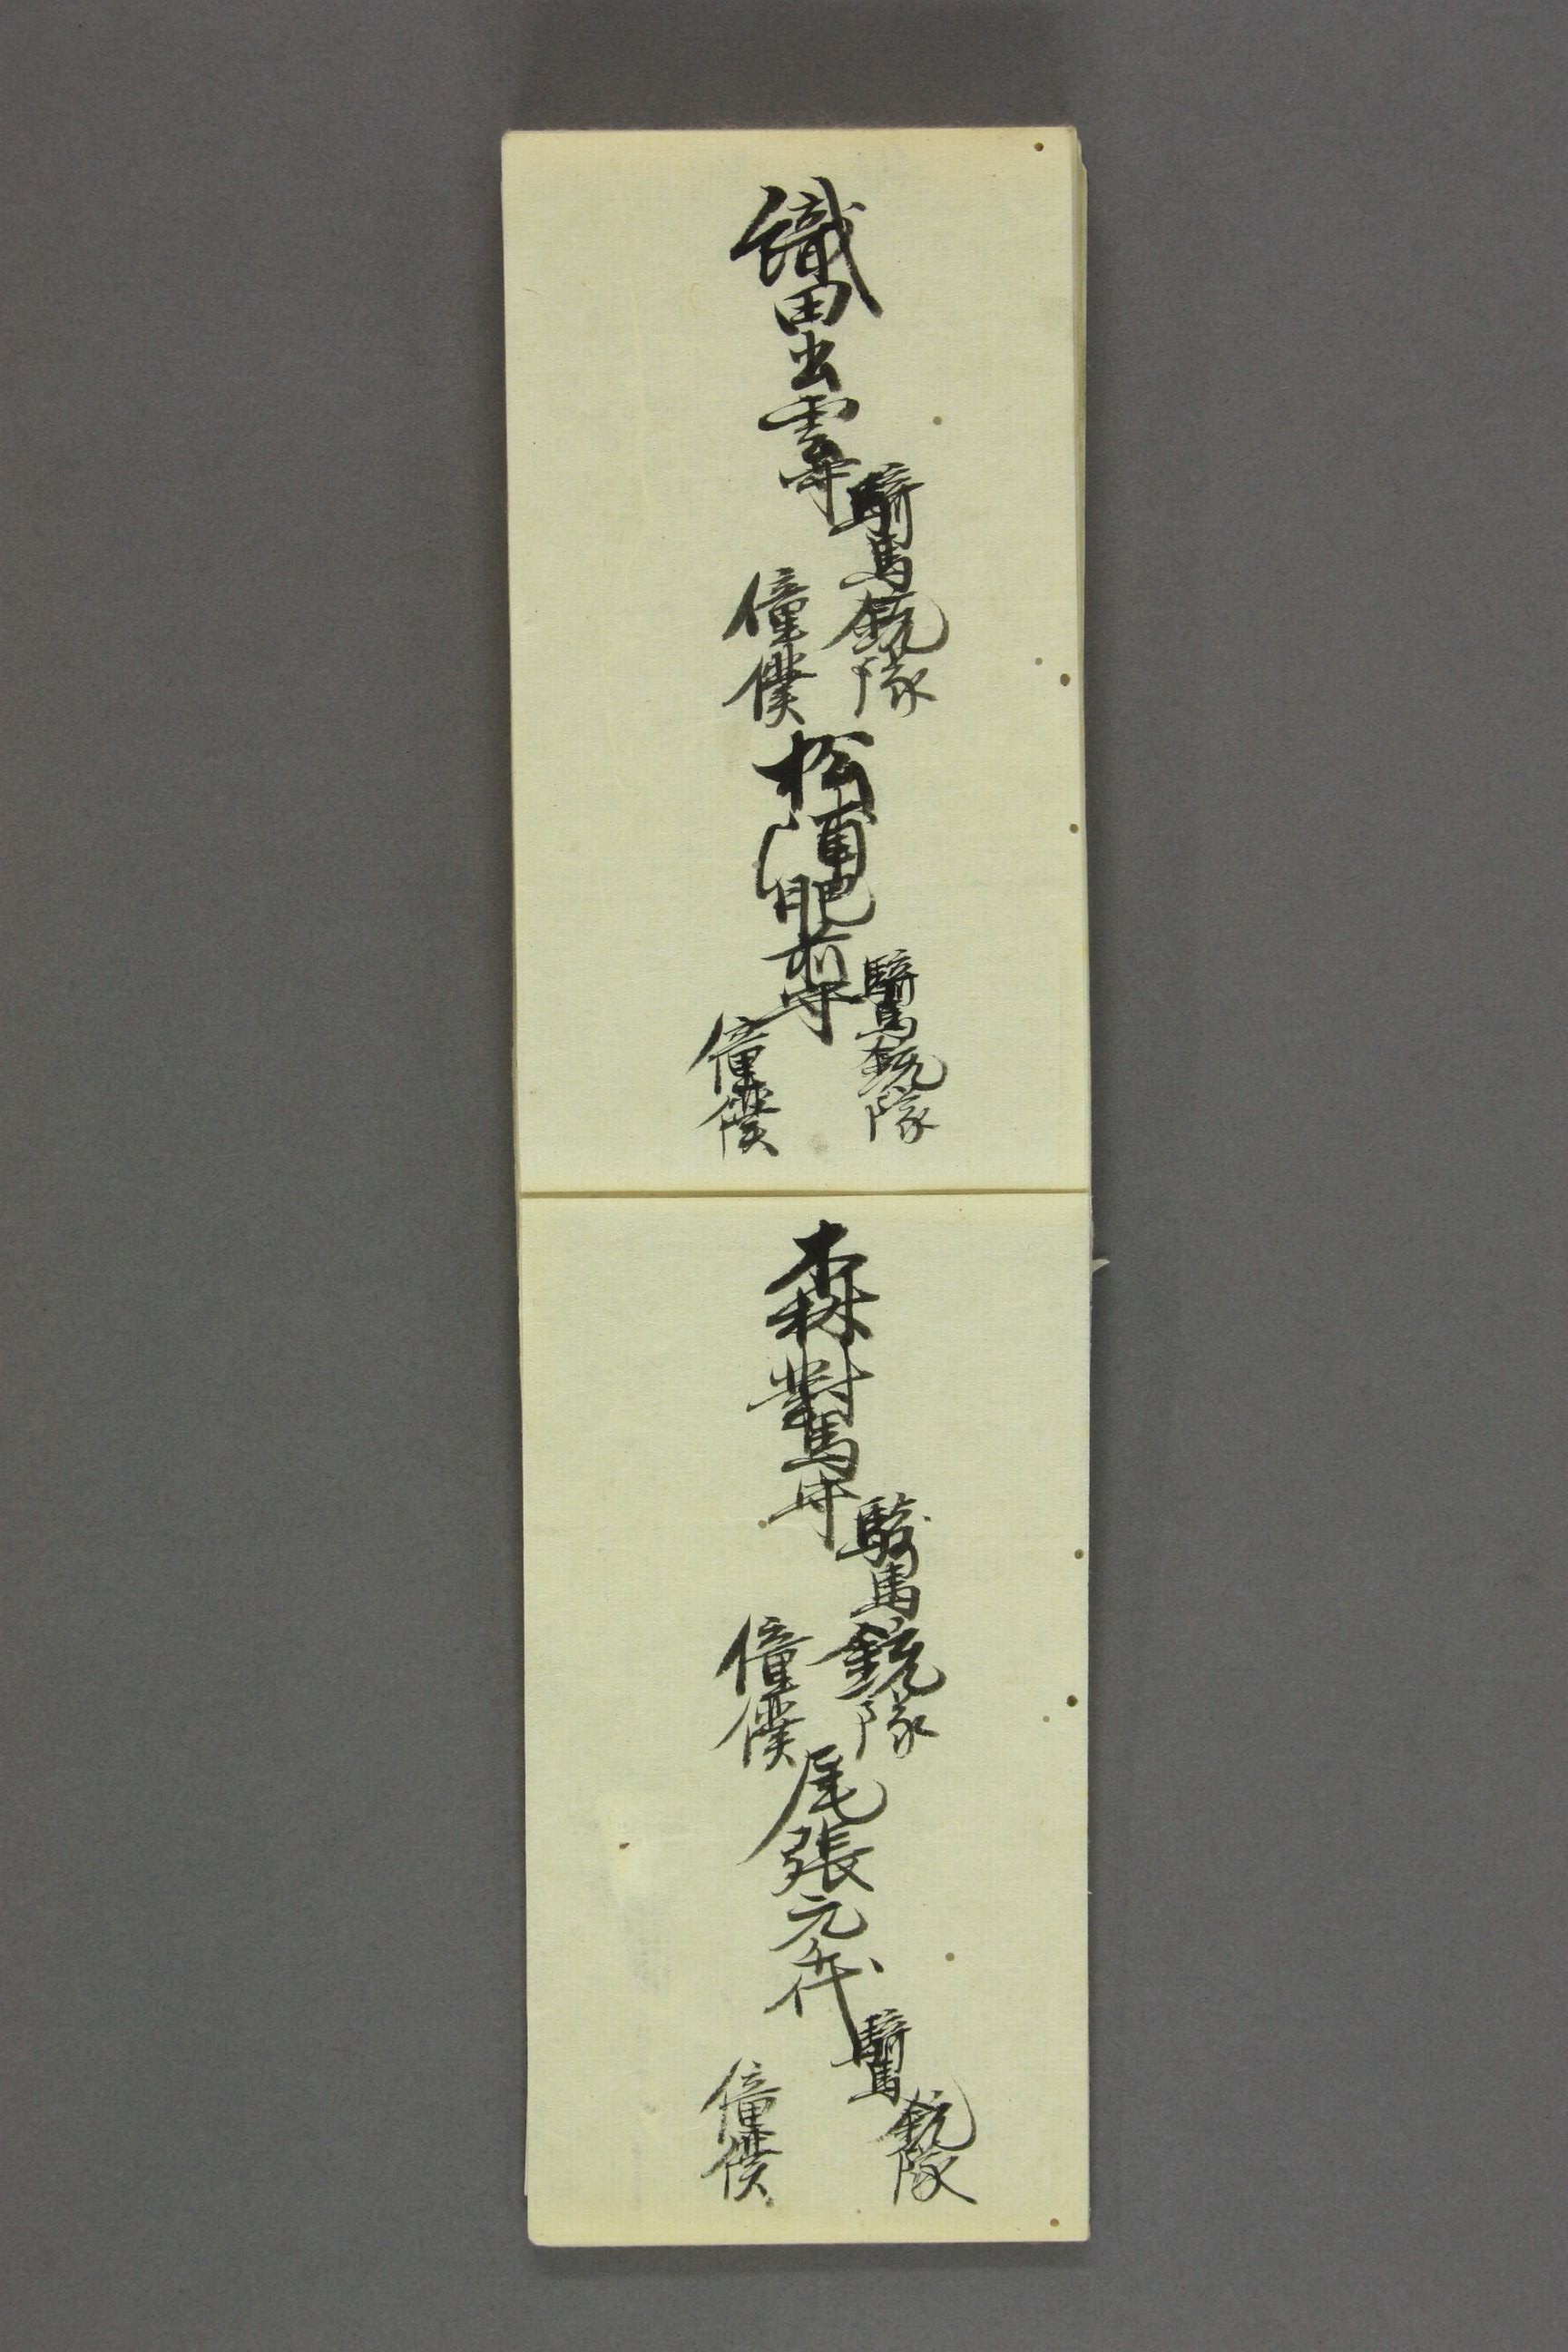 織田出雲守
騎馬銃隊
僮僕
松浦肥前守
騎馬銃隊
僮僕
森對馬守
騎馬銃隊
僮僕
尾張元千代
騎馬
銃隊
僮僕